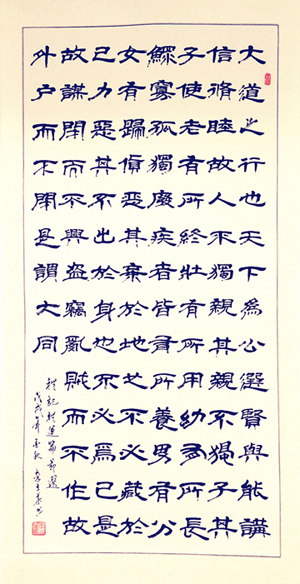 大道之行也天下為公選賢與能講
信脩睦故人不獨親其親不獨子其
子使老有所終壯有所用幼有所長
鰥寡孤獨廢疾者皆有所養男有分
女有歸貨惡其棄於地也不必藏於
己力惡其不出於身也不必為己是
故謀閉而不興盜竊亂賊而不作故
外戶而不閉是謂大同
礼記礼運篇節選
戊戌年